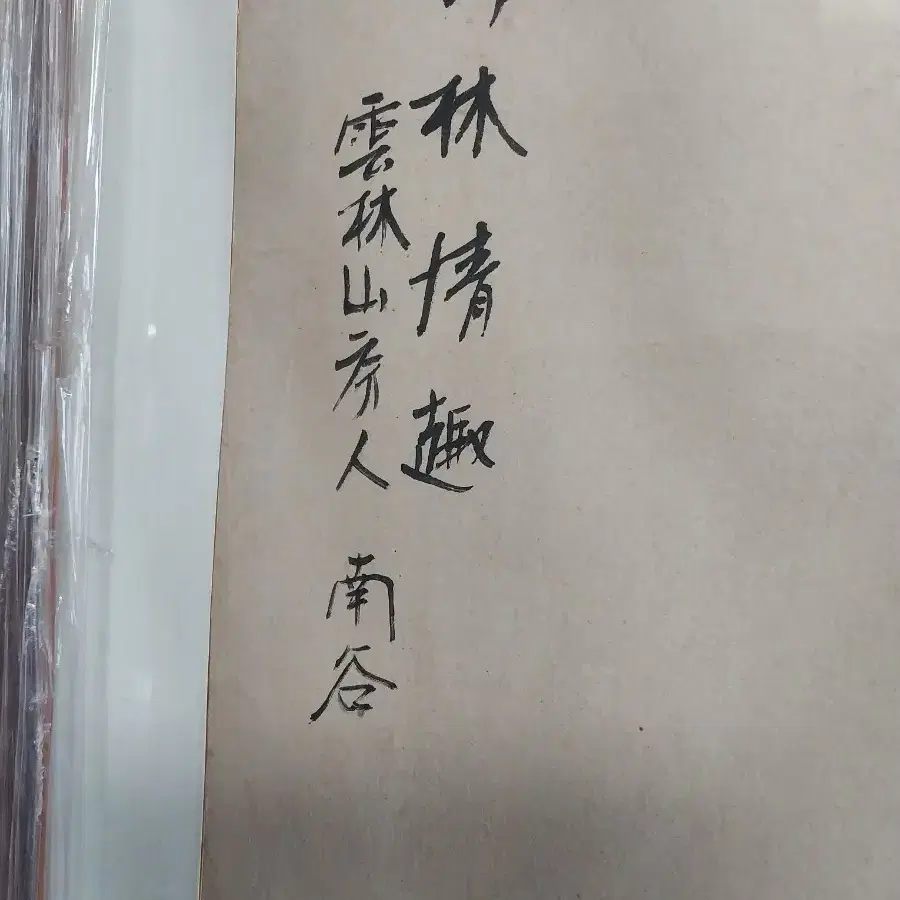 林情趣
雲林山房人 南谷